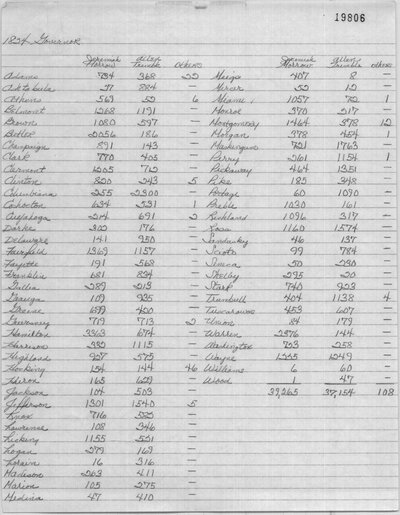 19806
1824 Governor
Jeremiah Morrow Allen Trimble Others Jeremiah Morrow Allen Trimble Others
Adams 734 368 22 Meigs 407 8 —
Ashtabula 27 884 — Mercer 52 12 —
Athens 563 52 6 Miami 1057 72 1
Belmont 1268 1191 — Monroe 370 217 —
Brown 1080 597 — Montgomery 1464 878 12
Butler 2056 186 — Morgan 378 454 1
Champaign 891 143 — Muskingum 721 1763 —
Clark 770 405 — Perry 261 1154 1
Clermont 1205 712 — Pickaway 464 1351 —
Clinton 820 243 5 Pike 185 348 —
Columbiana 255 2300 — Portage 60 1090 —
Cohocton 634 531 1 Preble 1030 161 —
Cuyahoga 214 691 2 Richland 1096 317 —
Darke 302 176 — Ross 1160 1574 —
Delaware 141 950 — Sandusky 46 137 —
Fairfield 1369 1157 — Scioto 99 784 —
Fayette 191 568 — Seneca 50 230 —
Franklin 681 834 — Shelby 295 20 —
Gallia 289 213 — Stark 740 923 —
Geauga 109 925 — Trumbull 404 1138 4
Greene 699 400 — Tuscarawas 453 607 —
Guernsey 719 713 2 Union 84 179 —
Hamilton 3363 674 — Warren 2876 144 —
Harrison 332 1115 — Washington 703 258 —
Highland 927 575 — Wayne 1225 1249 —
Hocking 154 144 46 Williams 6 60 —
Huron 165 629 — Wood 1 47 —
Jackson 104 503 39,265 37,154 108
Jefferson 1301 1540 5
Knox 716 522 —
Lawrence 108 346 —
Licking 1155 531 —
Logan 279 169 —
Lorain 16 316 —
Madison 203 411 —
Marion 105 275 —
Medina 47 410 —